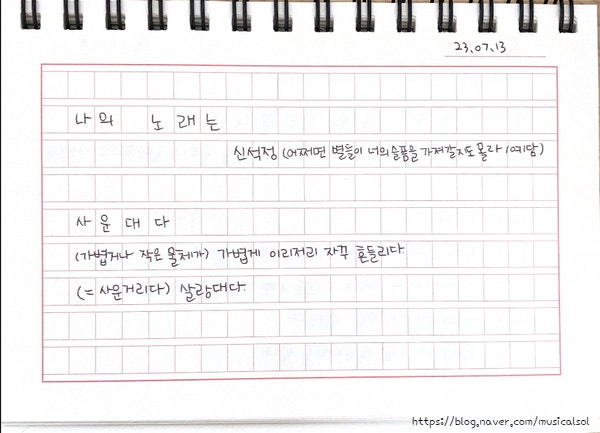 23.07.13
나의 노래는
신석정 (어쩌면 별들이 너의 슬픔을 가져갈지도 몰라 / 예담)
사운대다
(가볍거나 작은 물체가) 가볍게 이리저리 자꾸 흔들리다
(= 사운거리다) 살랑대다
https://blog.naver.com/musicalsol